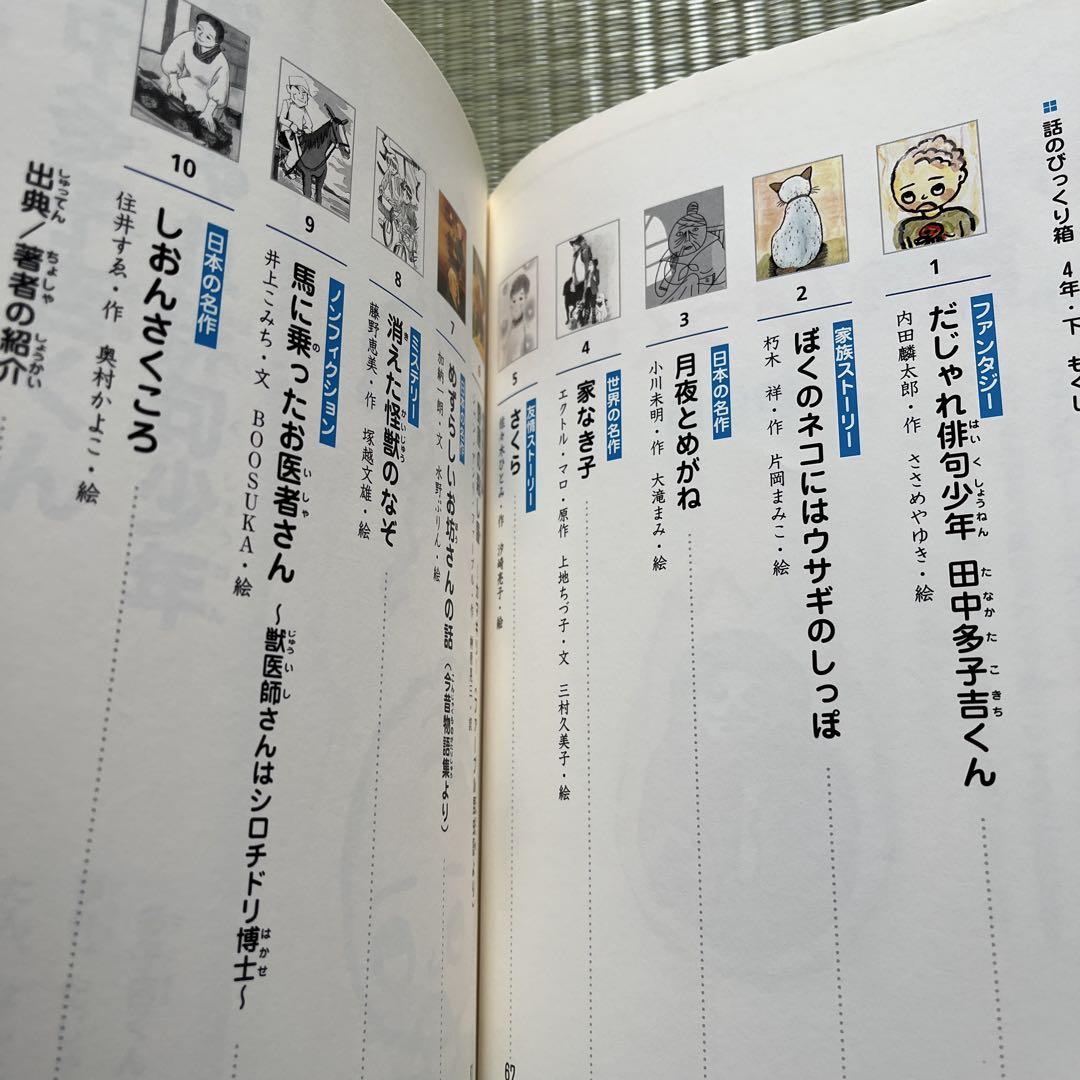 話のびっくり箱 4年・下 もくじ
1
ファンタジー
だじゃれ俳句少年 田中多子吉くん
はいくしょうねん たなかたこきち
内田麟太郎・作 ささめやゆき・絵
2
家族ストーリー
ぼくのネコにはウサギのしっぽ
朽木 祥・作 片岡まみこ・絵
3
日本の名作
月夜とめがね
小川未明・作 大滝まみ・絵
4
世界の名作
家なき子
エクトル・マロ・原作 上地ちづ子・文 三村久美子・絵
5
友情ストーリー
さくら
佐々木ひとみ・作 汐崎亮子・絵
7
めずらしいお坊さんの話(今昔物語集より)
加納一朗・文 水野ぷりん・絵
8
ミステリー
消えた怪獣のなぞ
き かいじゅう
藤野恵美・作 塚越文雄・絵
9
ノンフィクション
馬に乗ったお医者さん ～獣医師さんはシロチドリ博士～
の いしゃ じゅういし はかせ
井上こみち・文 BOOSUKA・絵
10
日本の名作
しおんさくころ
住井すゑ・作 奥村かよこ・絵
出典/著者の紹介
しゅってん ちょしゃ しょうかい
67